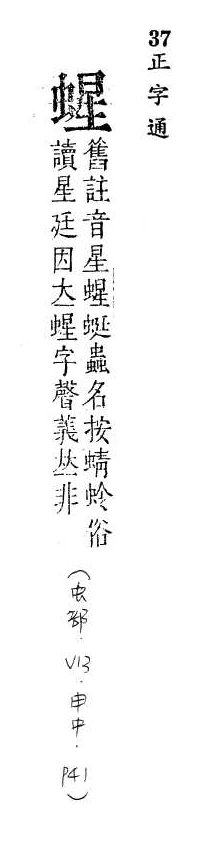 37 正字通
⿰虫星
舊註音星⿰虫星蜓蟲名按蜻蛉俗
讀星廷因⿰虫星字聲義丛非
(虫部.V13.申中.P41)